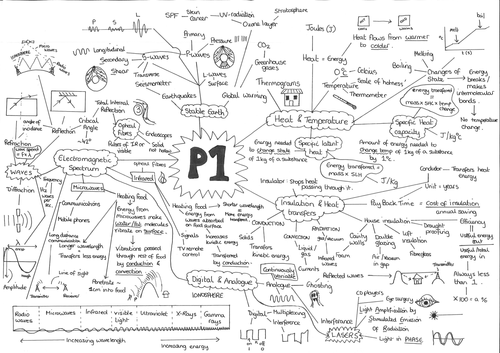 P1
SPF
Skin Cancer
UV-radiation
Stratosphere
Ozone layer
P
S
L
Primary
P-waves
Pressure
Longitudinal
Secondary
S-waves
Shear
Transverse
Seismometer
L-waves
Surface
Earthquakes
Stable Earth
CO₂
Greenhouse gases
Global warming
Joules (J)
Heat = Energy
Heat flows from warmer
to colder.
Thermograms
0°c Celsius
Scale of hotness
Temperature
Thermometer
Heat & Temperature
Melting
Boiling
Changes of State
melt
boil
Energy breaks / makes
intermolecular bonds.
No temperature change.
energy transferred =
mass x SHC x temp change
Specific Heat
capacity
J/kg°c
Amount of energy needed to
change temp of 1kg of a substance
by 1°c
Specific latent
heat
Energy needed
to change state
of 1kg of a substance
Energy transferred =
mass x SLH
J/kg
Total Internal
Reflection
Critical Angle
~42°
Optical Fibres
Endoscopes
Pulses of IR or visible
Solid not hollow
optical fibres
Infrared
Reflection
angle of incidence
Refraction
wave speed = f x λ
WAVES
Diffraction
Frequency
Hz
Amplitude
Electromagnetic
Spectrum
Microwaves
Communications
Mobile phones
Long distance
communication
Longer wavelength
Transfers less energy
Line of sight
Transmitter
Receiver
Heating food
Energy from
microwaves make
water/fat molecules
vibrate on surface
Vibrations passed
through rest of food
by conduction &
convection.
Penetrate
~1cm into food
Heating food
Shorter wavelength
energy from waves absorbed
on food surface
More energy transferred
Signals
TV remote
control
Increases
kinetic energy
Transferred
by conduction
Insulator: Stops heat
passing through it.
Conductor: Transfers heat
Energy.
Insulation & Heat
transfers
Unit = years
Pay Back Time = Cost of insulation
annual saving
CONDUCTION
Solids
Transfers
Kinetic Energy
CONVECTION
Liquid / gas
RADIATION
gas/vacuum
Infrared
Waves
House insulation
Cavity
walls
Foam
Double
glazing
Air / Vacuum
Loft
insulation
Fibreglass
Draught
proofing
Efficiency
Useful energy
out
Useful / total energy
in
Always less
than 1.
X 100 = %
Digital & Analogue
IONOSPHERE
Continuously
Variable
Analogue
Currents
Reflected waves
Ghosting
Transmitter
Digital
Multiplexing
Interference
on
off
Interference
LASERS
CD players
Eye surgery
Light Amplification by
Stimulated Emission of
Radiation
Light in PHASE
Radio
waves
Microwaves
Infrared
visible
Light
Ultraviolet
X-Rays
Gamma
rays
Increasing wavelength
Increasing energy